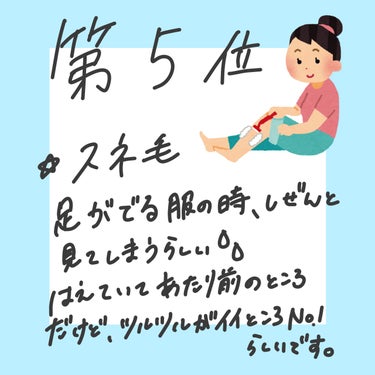 第5位
☆スネ毛
足がでる服の時、しぜんと
見てしまうらしい
はえていてあたり前のところ
だけど、ツルツルがイイところNo.1
らしいです。